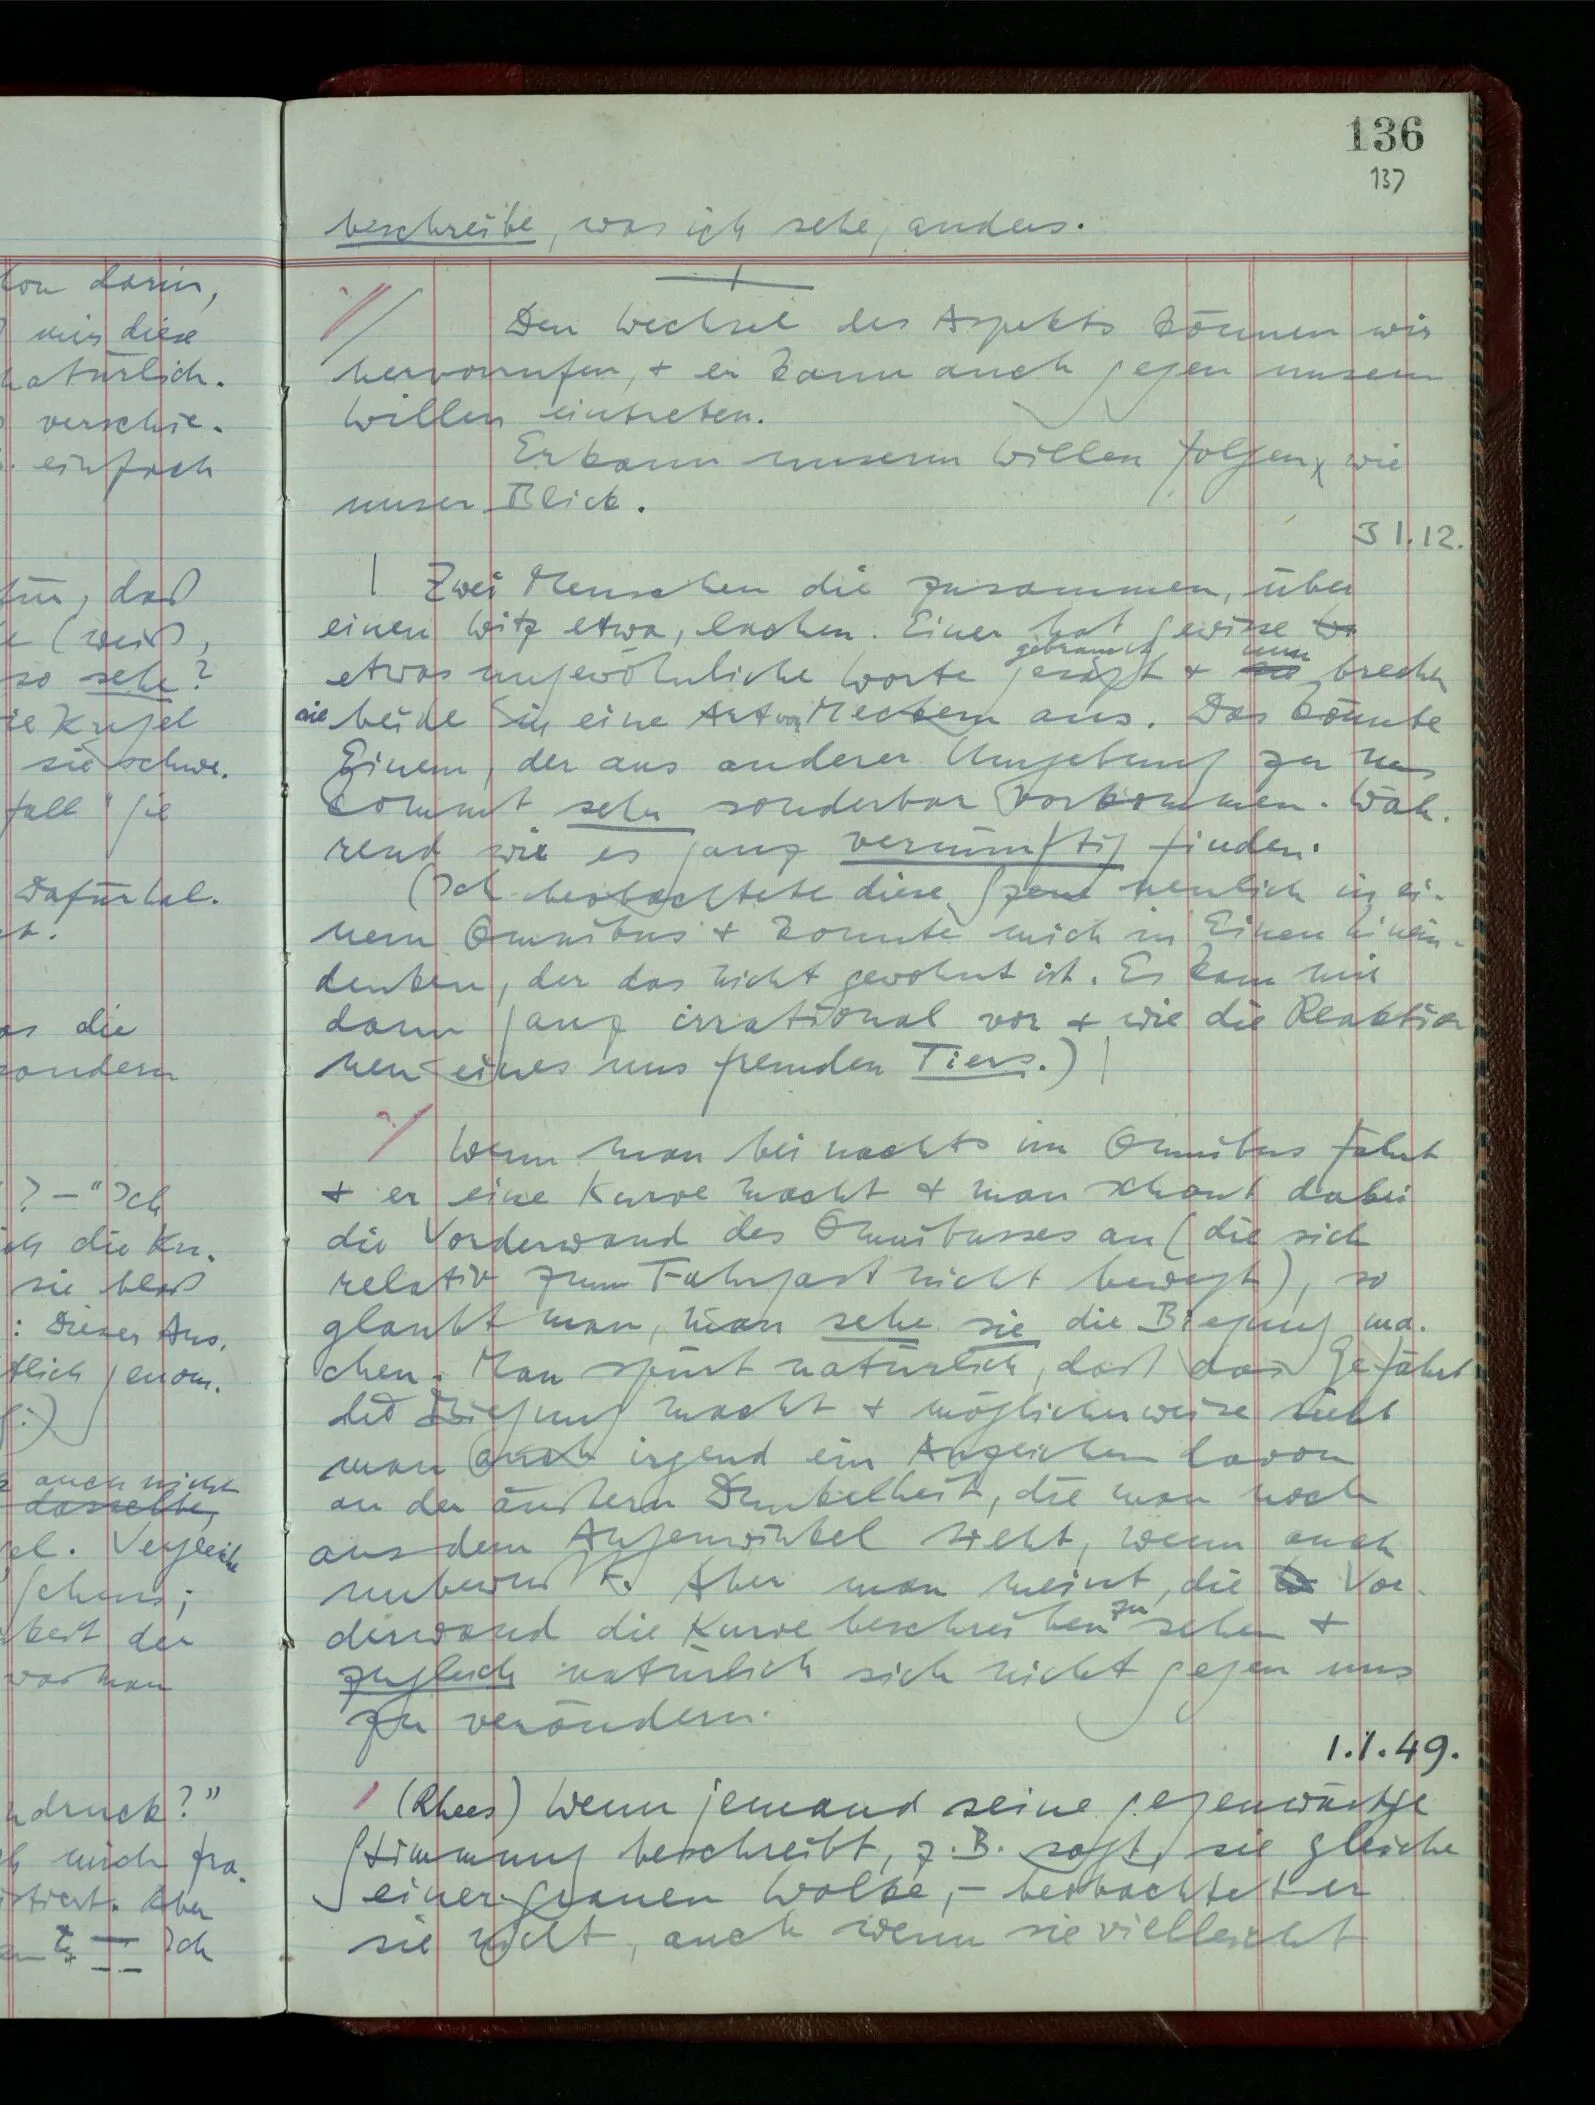 136
137
beschreibe, was ich sehe, anders.
Den Wechsel des Aspekts können wir
hervorrufen, + er kann auch gegen unsern
Willen eintreten.
Er kann unserm Willen folgen, wie
unser Blick.
31.12.
Zwei Menschen die zusammen, über
einen Witz etwa, lachen. Einer hat gewisse
etwas ungewöhnliche Worte gesagt gebraucht + nun brechen
sie beide in eine Art von Meckern aus. Das könnte
Einem, der aus anderer Umgebung zu uns
kommt sehr sonderbar vorkommen. Wäh-
rend wir es ganz vernünftig finden.
(Ich beobachtete diese Szene neulich in ei-
nem Omnibus + konnte mich in Einen hinein-
denken, der das nicht gewohnt ist. Es kam mir
dann ganz irrational vor + wie die Reaktio-
nen eines uns fremden Tiers.)
Wenn man bei nachts im Omnibus fährt
+ er eine Kurve macht + man schaut dabei
die Vorderwand des Omnibusses an (die sich
relativ zum Fahrgast nicht bewegt), so
glaubt man, man sehe sie die Biegung ma-
chen. Man spürt natürlich, daß das Gefährt
die Biegung macht + möglicherweise sieht
man auch irgend ein Anzeichen davon
an der äußern Dunkelheit, die man noch
aus dem Augenwinkel sieht, wenn auch
unbewußt. Aber man meint, die Vor-
derwand die Kurve beschreiben zu sehen +
zugleich natürlich sich nicht gegen uns
zu verändern.
1.1.49.
(Rhees) Wenn jemand seine gegenwärtige
Stimmung beschreibt, z.B. sagt, sie gleiche
einer grauen Wolke, – beobachtet er
sie nicht, auch wenn sie vielleicht
hon darin,
mir diese
natürlich.
verschie-
einfach
für, daß
e (weiß,
so sehe?
ie Kugel
sie schwe-
fall" ge
Dafürhal-
t.
as die
sondern
? – "Ich
ich die Ku-
sie bloß
: Dieser Aus-
tlich genom-
auch nicht
dasselbe,
el. Vergleiche
Sehens;
keit der
was man
ndruck?"
h mich fra-
istiert. Aber
Ich